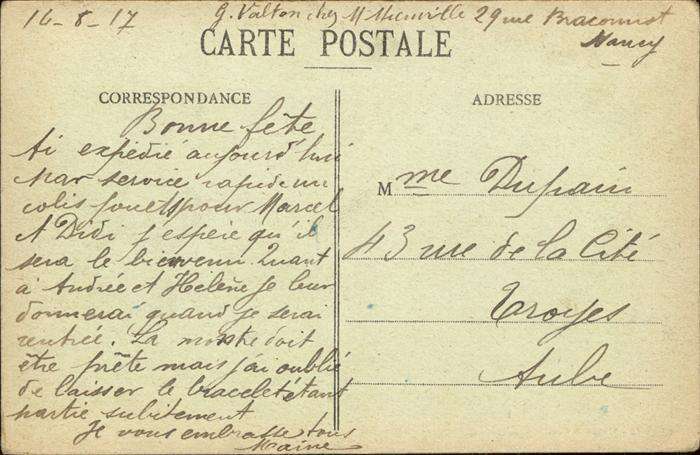 16-8-17 G. Valton chez Mme 29 rue Braconnot
Nancy
CARTE POSTALE
CORRESPONDANCE
Bonne fête
Ai expédié aujourd'hui
par service rapide un
colis jouets pour Marcel
A Didi j'espère qu'il
sera le bienvenu. Quant
à Andrée et Hélène je leur
donnerai quand je serai
rentrée. La montre doit
être prête mais j'ai oublié
de laisser le bracelet étant
partie subitement
Je vous embrasse tous
ADRESSE
Mme Dupain
43 rue de la Cité
Troyes
Aube